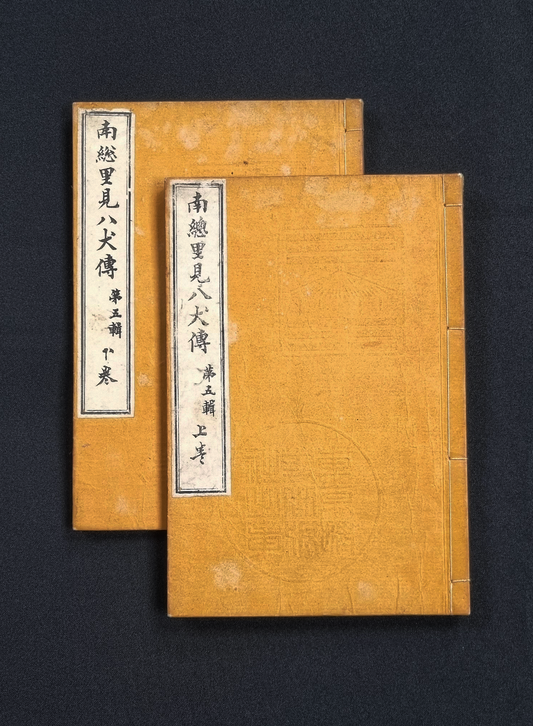 南總里見八犬傳
第五輯
上巻
南総里見八犬傳
第五輯
下巻